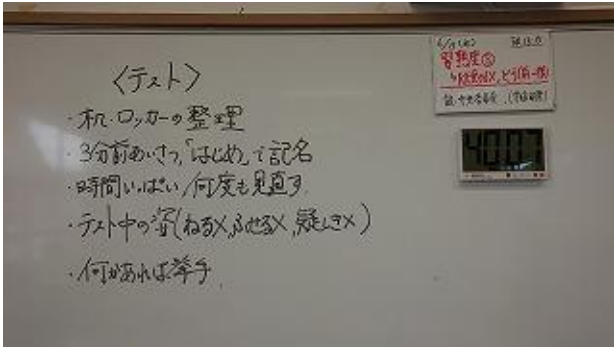 〈テスト〉
・机・ロッカーの整理
・3分前あいさつ、「はじめ」で記名
・時間いっぱい、何度も見直す
・テスト中の姿(ねる×,ふせる×,疑しき×)
・何かあれば挙手
習熟度⑤
40:07